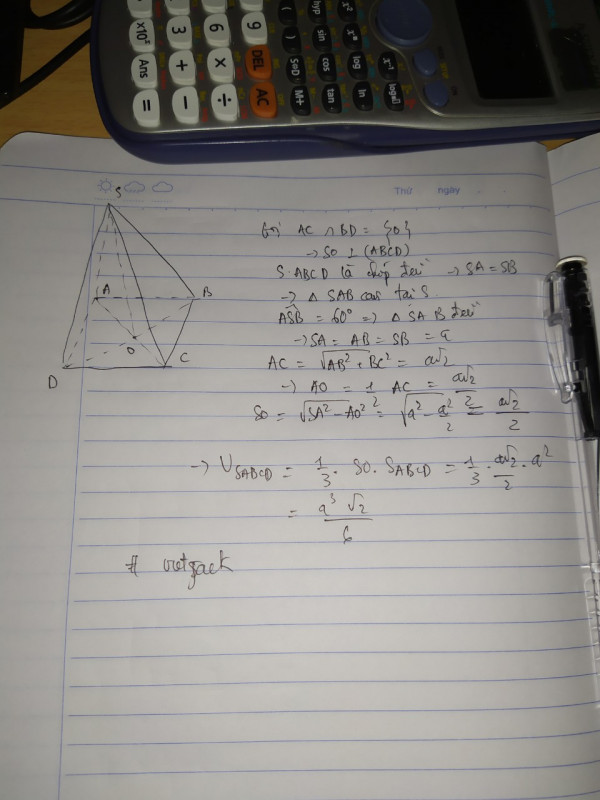 x10ˣ 3 6 9
Ans + × DEL
= − ÷ AC
hyp sin cos tan
( ) S⇔D M+
log ln
x² xⁿ x⁻¹ log▯
ON
Thứ ngày
S
A
B
O
C
D
Gọi AC ∩ BD = {O}
→ SO ⊥ (ABCD)
S.ABCD là chóp đều → SA = SB
→ △ SAB cân tại S.
ASB = 60° => △ SAB đều
→ SA = AB = SB = a
AC = √AB² + BC² = a√2
→ AO = 1/2 AC = a√2/2
SO = √SA² − AO² = √a² − a²/2 = a√2/2
→ V SABCD = 1/3 . SO . S ABCD = 1/3 . a√2/2 . a²
= a³√2/6
#